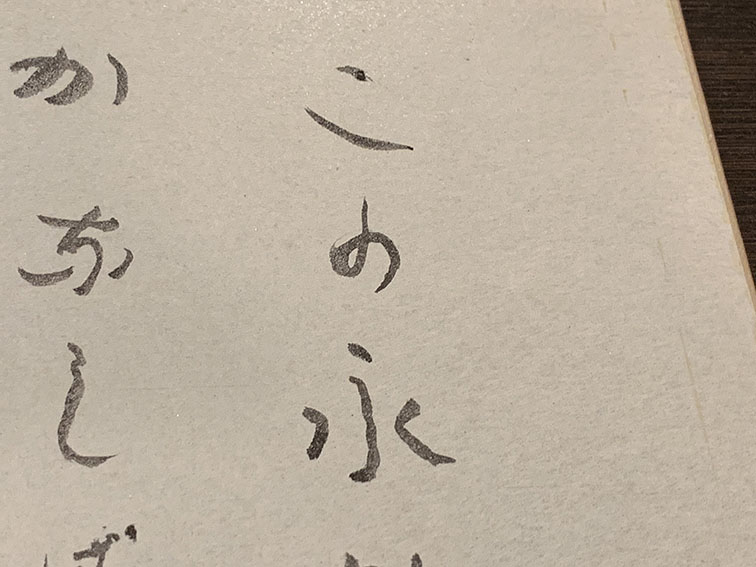 この永
かなしげ